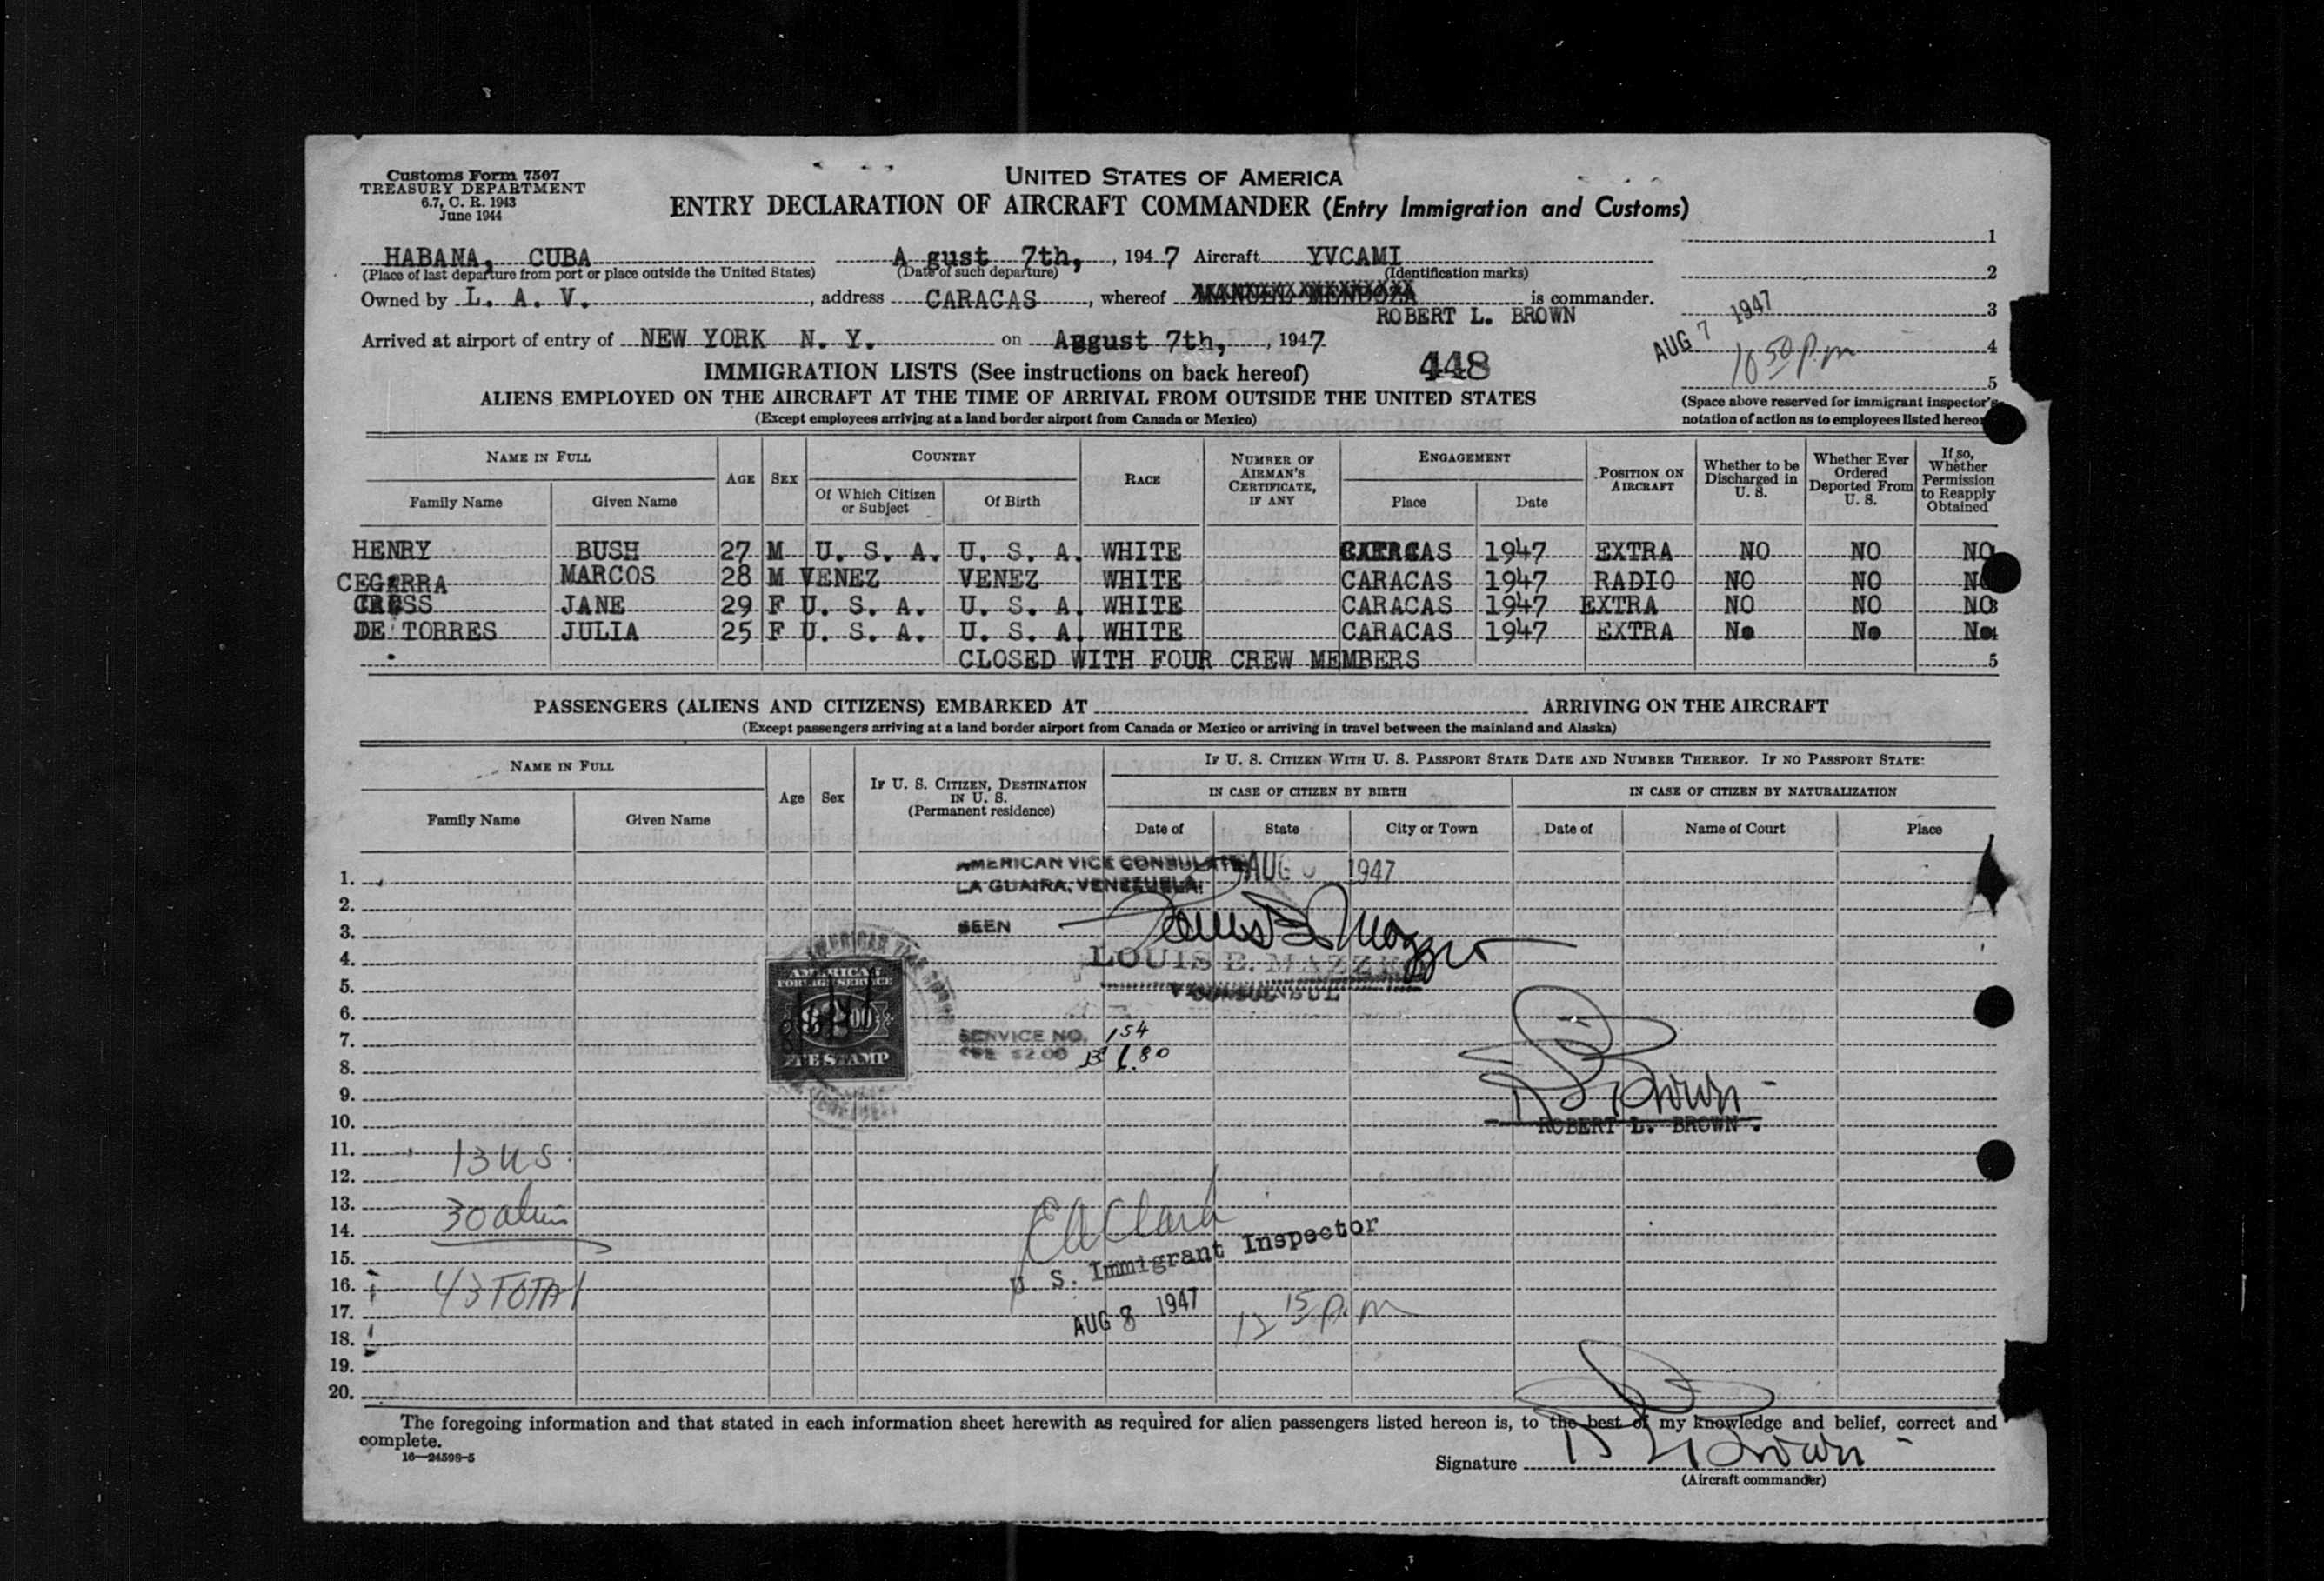 Customs Form 7507
TREASURY DEPARTMENT
6.7, C. R. 1943
June 1944
UNITED STATES OF AMERICA
ENTRY DECLARATION OF AIRCRAFT COMMANDER (Entry Immigration and Customs)
HABANA, CUBA A gust 7th, , 1947 Aircraft YVCAMI
(Place of last departure from port or place outside the United States) (Date of such departure) (Identification marks)
Owned by L. A. V. , address CARACAS , whereof MANUEL MENDOZA is commander.
ROBERT L. BROWN
Arrived at airport of entry of NEW YORK N. Y. on August 7th, , 1947
1
2
3
4
5
AUG 7 1947
10 50 p.m
(Space above reserved for immigrant inspector's
notation of action as to employees listed hereon
IMMIGRATION LISTS (See instructions on back hereof) 448
ALIENS EMPLOYED ON THE AIRCRAFT AT THE TIME OF ARRIVAL FROM OUTSIDE THE UNITED STATES
(Except employees arriving at a land border airport from Canada or Mexico)
NAME IN FULL AGE SEX COUNTRY RACE NUMBER OF AIRMAN'S CERTIFICATE, IF ANY ENGAGEMENT POSITION ON AIRCRAFT Whether to be Discharged in U. S. Whether Ever Ordered Deported From U. S. If so, Whether Permission to Reapply Obtained
Family Name Given Name Of Which Citizen or Subject Of Birth Place Date
HENRY BUSH 27 M U. S. A. U. S. A. WHITE CARACAS 1947 EXTRA NO NO NO
CEGARRA MARCOS 28 M VENEZ VENEZ WHITE CARACAS 1947 RADIO NO NO NO
JANE 29 F U. S. A. U. S. A. WHITE CARACAS 1947 EXTRA NO NO NO 3
DE TORRES JULIA 25 F U. S. A. U. S. A. WHITE CARACAS 1947 EXTRA No No No 4
CLOSED WITH FOUR CREW MEMBERS 5
PASSENGERS (ALIENS AND CITIZENS) EMBARKED AT ARRIVING ON THE AIRCRAFT
(Except passengers arriving at a land border airport from Canada or Mexico or arriving in travel between the mainland and Alaska)
NAME IN FULL Age Sex IF U. S. CITIZEN, DESTINATION IN U. S. (Permanent residence) IF U. S. CITIZEN WITH U. S. PASSPORT STATE DATE AND NUMBER THEREOF. IF NO PASSPORT STATE:
IN CASE OF CITIZEN BY BIRTH IN CASE OF CITIZEN BY NATURALIZATION
Family Name Given Name Date of State City or Town Date of Name of Court Place
1.
2.
3.
4.
5.
6.
7.
8.
9.
10.
11.
12.
13.
14.
15.
16.
17.
18.
19.
20.
AMERICAN VICE CONSULATE AUG 1947
LA GUAIRA, VENEZUELA
SEEN
Louis B. Mazzeo
LOUIS B. MAZZEO
AMERICAN
FOREIGN SERVICE
FEE STAMP
SERVICE NO. 154
FEE $2.00 B 6.80
R L Brown
ROBERT L. BROWN.
13 US.
30 alien
43 TOTAL
E A Clark
U. S. Immigrant Inspector
AUG 8 1947 12 15 p.m
The foregoing information and that stated in each information sheet herewith as required for alien passengers listed hereon is, to the best of my knowledge and belief, correct and
complete.
16—24598-5
Signature R L Brown
(Aircraft commander)